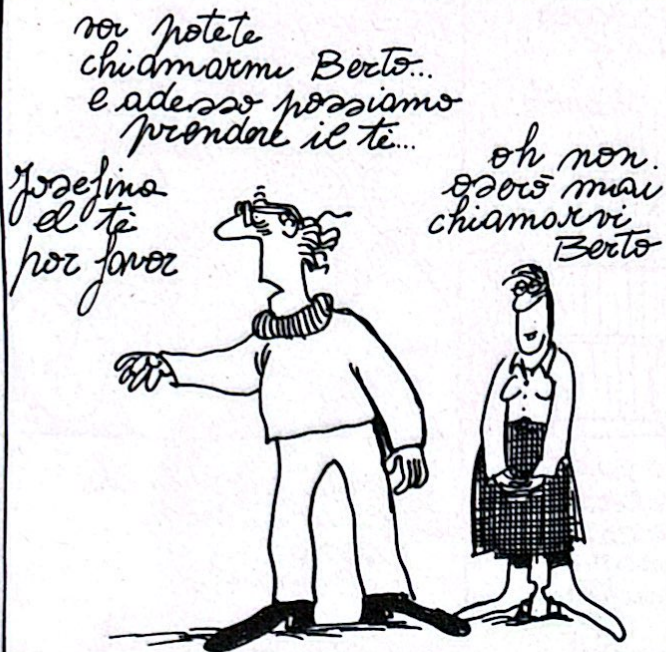 voi potete
chiamarmi Berto...
e adesso possiamo
prendere il tè...
Josefina
el tè
por favor
oh non.
oserò mai
chiamarvi
Berto